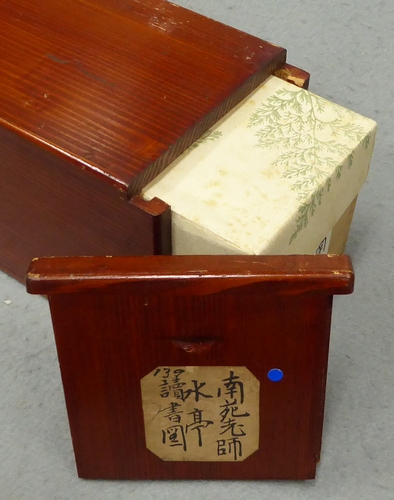 南苑先師
水亭
讀書図
139